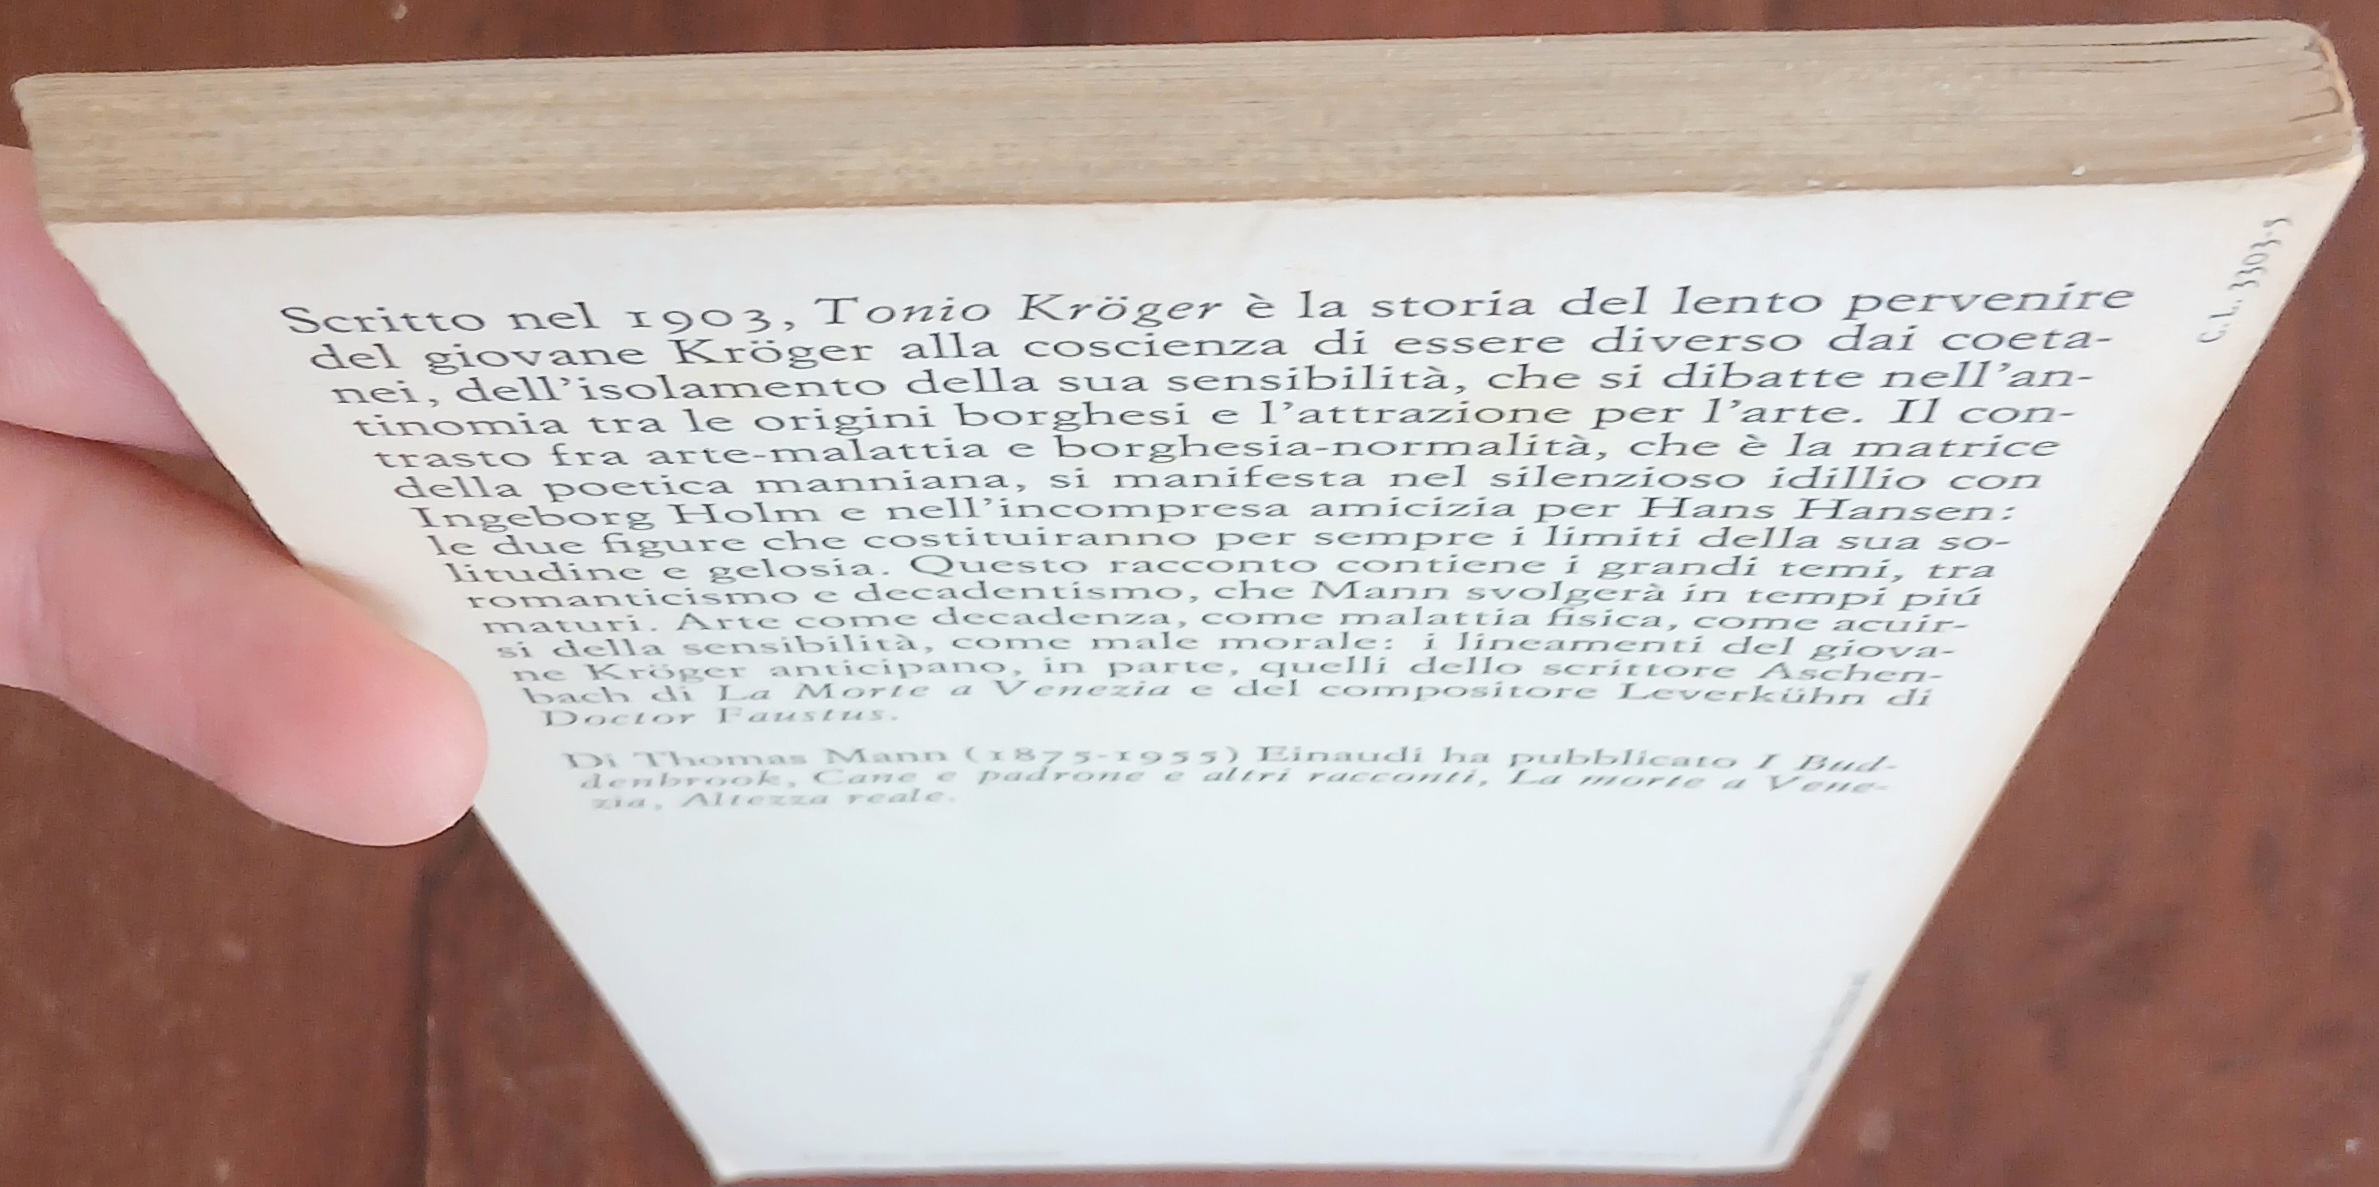 Scritto nel 1903, Tonio Kröger è la storia del lento pervenire
del giovane Kröger alla coscienza di essere diverso dai coeta-
nei, dell'isolamento della sua sensibilità, che si dibatte nell'an-
tinomia tra le origini borghesi e l'attrazione per l'arte. Il con-
trasto fra arte-malattia e borghesia-normalità, che è la matrice
della poetica manniana, si manifesta nel silenzioso idillio con
Ingeborg Holm e nell'incompresa amicizia per Hans Hansen:
le due figure che costituiranno per sempre i limiti della sua so-
litudine e gelosia. Questo racconto contiene i grandi temi, tra
romanticismo e decadentismo, che Mann svolgerà in tempi piú
maturi. Arte come decadenza, come malattia fisica, come acuir-
si della sensibilità, come male morale: i lineamenti del giova-
ne Kröger anticipano, in parte, quelli dello scrittore Aschen-
bach di La Morte a Venezia e del compositore Leverkühn di
Doctor Faustus.
Di Thomas Mann (1875-1955) Einaudi ha pubblicato I Bud-
denbrook, Cane e padrone e altri racconti, La morte a Vene-
zia, Altezza reale.
C.L. 3303-5